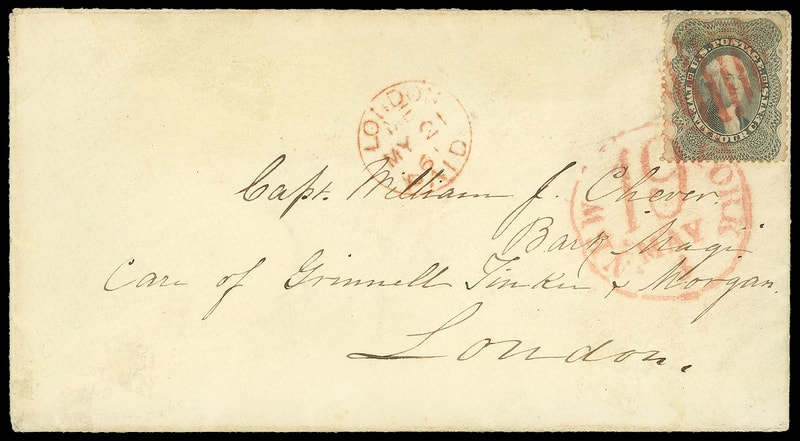 U.S. POSTAGE
TWENTY FOUR CENTS
LONDON
MY 21
61
PAID
NEW YORK
19
MAY
Capt. William J. Chever.
Bark Magi
Care of Grinnell Tinker & Morgan.
London.